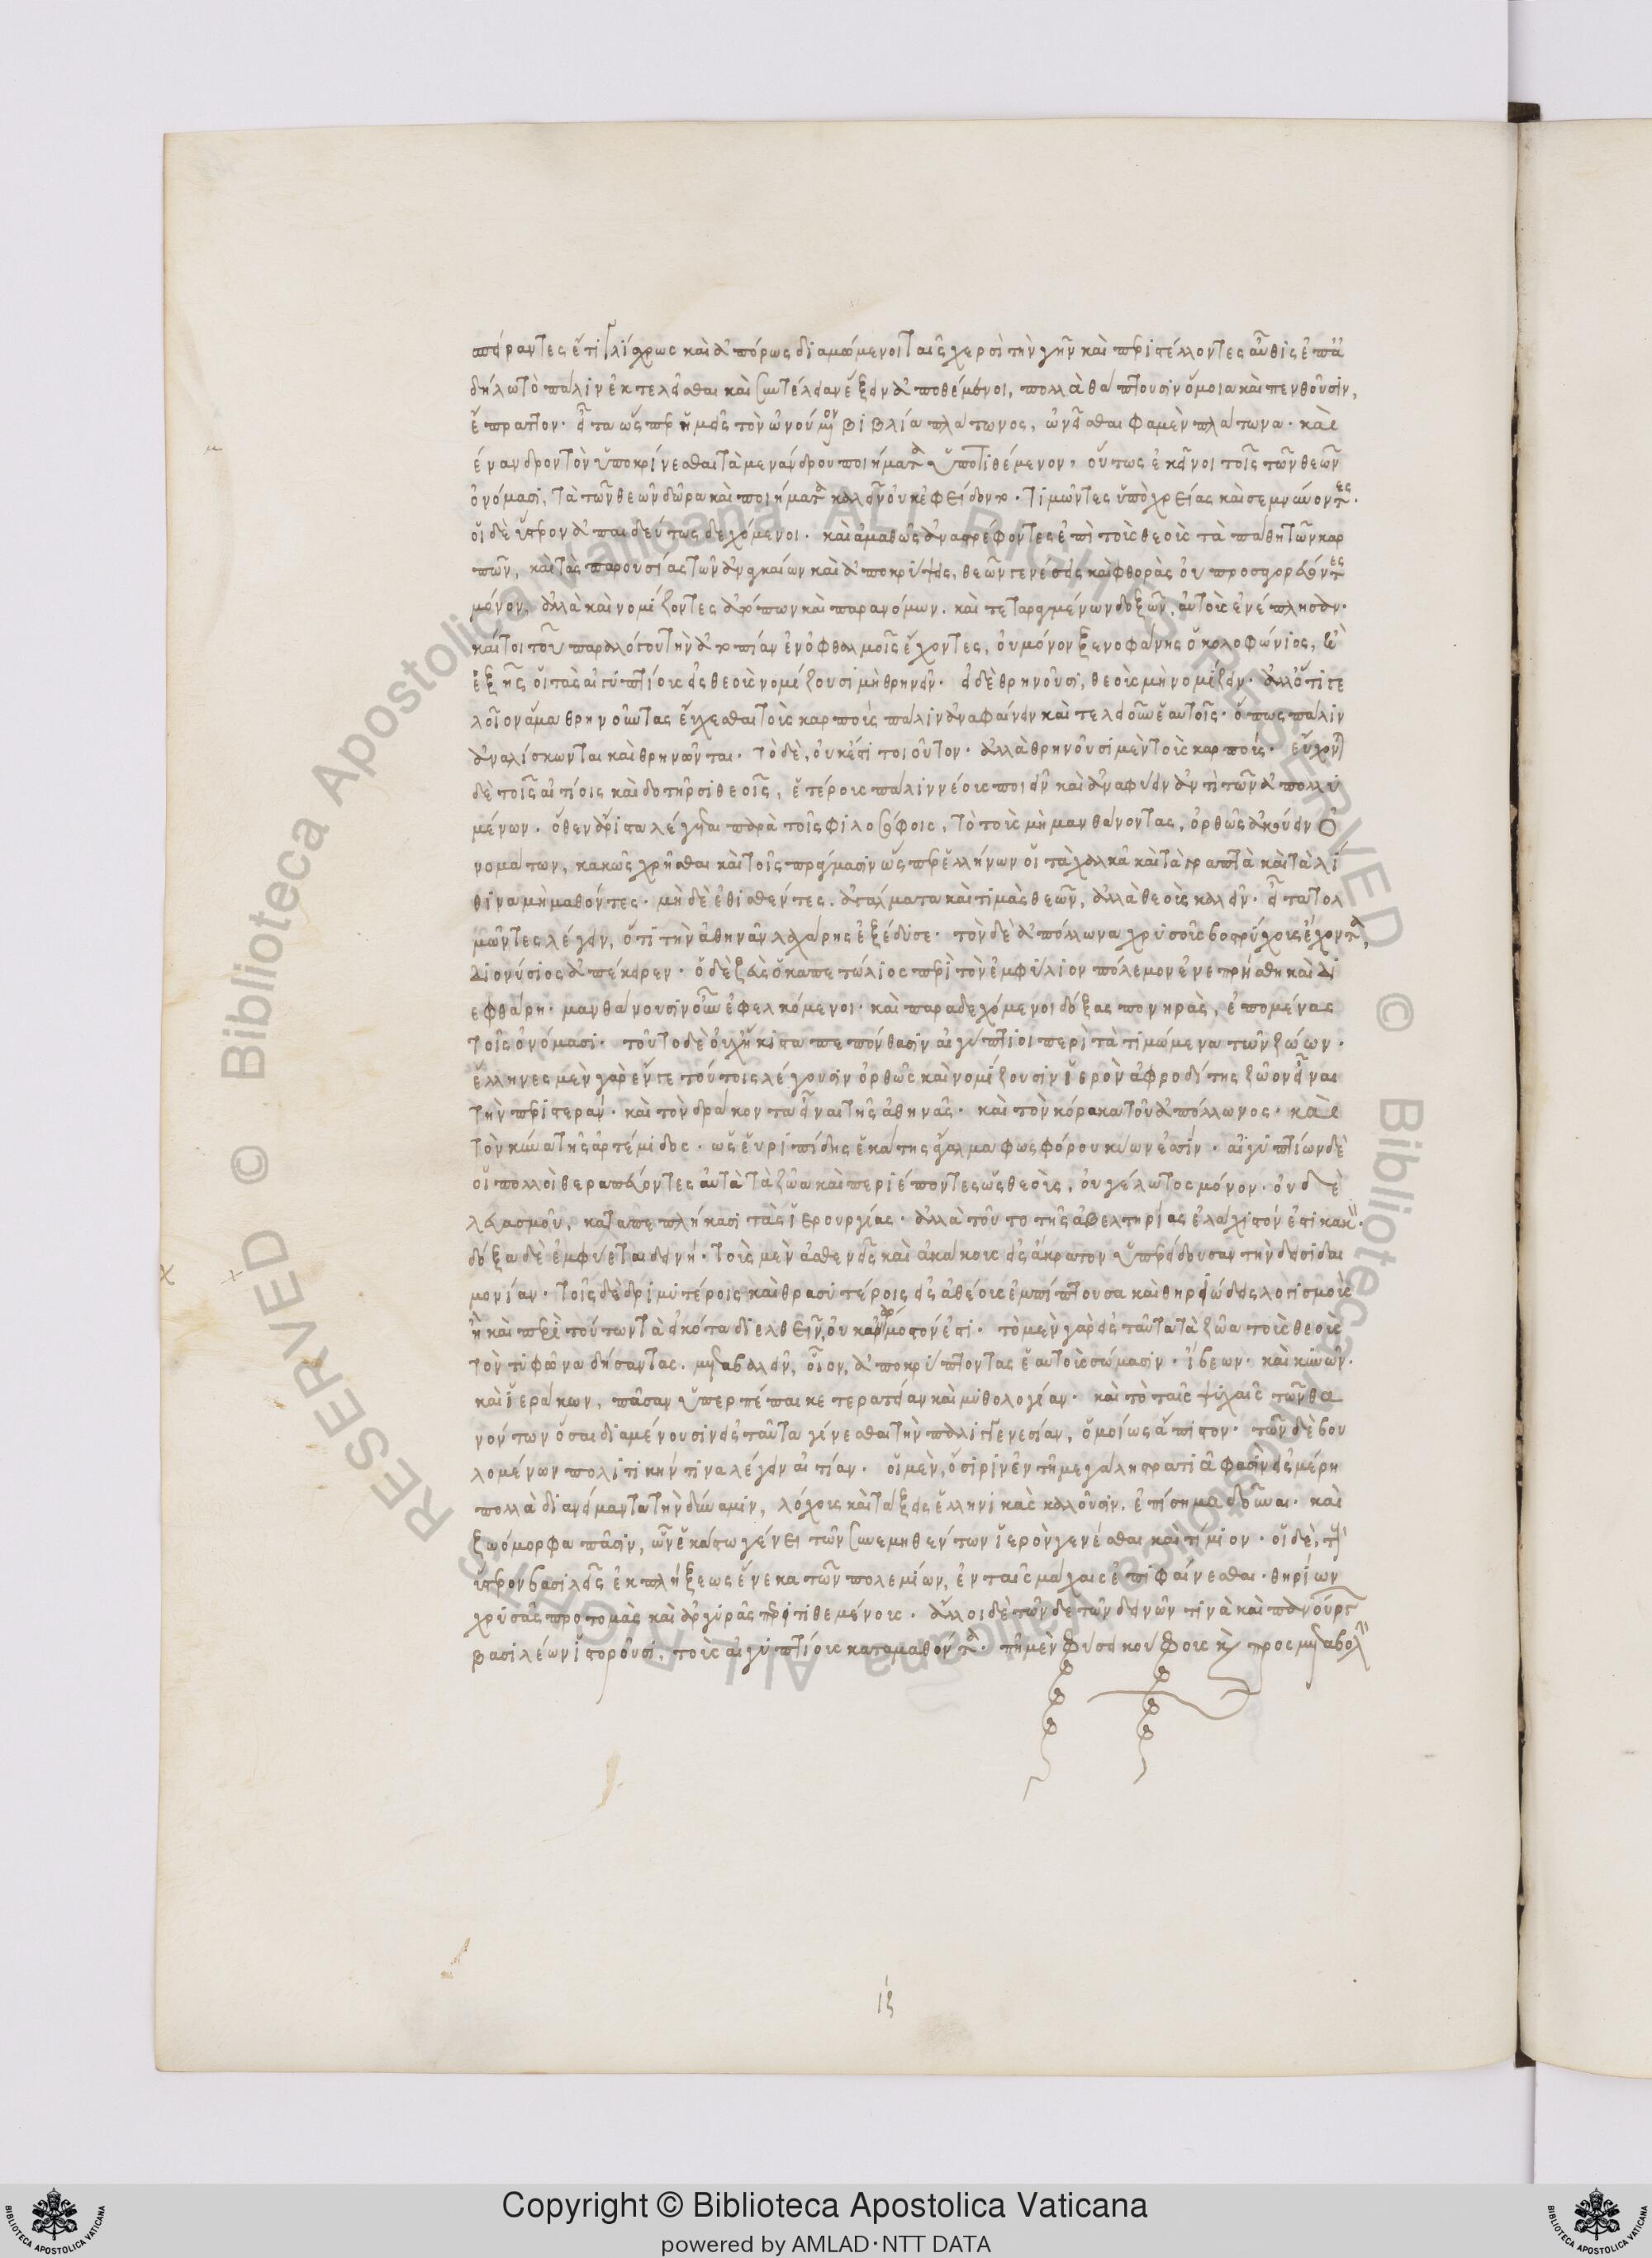 σπείραντες ἔτι γλίσχρως καὶ ἀπόρως διαμώμενοι ταῖς χερσὶ τὴν γῆν καὶ περιστέλλοντες αὖθις ἐπ' ἀ
δήλω τὸ πάλιν ἐκτελεῖσθαι καὶ συντέλειαν ἕξειν ἀποθέμενοι, πολλὰ θάπτουσιν ὅμοια καὶ πενθοῦσιν,
ἔπραττον. εἶτα ὥσπερ ἡμεῖς τὸν ὠνούμενον βιβλία πλάτωνος, ὠνεῖσθαι φαμὲν πλάτωνα. καὶ
ένανδρον τὸν ὑποκρίνεσθαι τὰ μενάνδρου ποιήματα ὑποτιθέμενον. οὕτως ἐκεῖνοι τοῖς τῶν θεῶν
ὀνόμασι, τὰ τῶν θεῶν δῶρα καὶ ποιήματα καλεῖν οὐκ ἐφείδοντο. τιμῶντες ὑπὸ χρείας καὶ σεμνύνοντες.
οἱ δὲ ὕστερον ἀπαιδεύτως δεχόμενοι. καὶ ἀμαθῶς ἀναστρέφοντες ἐπὶ τοὺς θεοὺς τὰ πάθη τῶν καρ
πῶν, καὶ τὰς παρουσίας τῶν ἀναγκαίων καὶ ἀποκρύψεις, θεῶν γενέσεις καὶ φθορὰς οὐ προσαγορεύοντες
μόνον, ἀλλὰ καὶ νομίζοντες ἀτόπων καὶ παρανόμων. καὶ τεταραγμένων δοξῶν, αὑτοὺς ἐνέπλησαν.
καίτοι τοῦ παραλόγου τὴν ἀτοπίαν ἐν ὀφθαλμοῖς ἔχοντες, οὐ μόνον ξενοφάνης ὁ κολοφώνιος, ἢ
ἑξῆς, οἱ τὰς αἰγυπτίους εἰς θεοὺς νομίζουσι μὴ θρηνεῖν. εἰ δὲ θρηνοῦσι, θεοὺς μὴ νομίζειν. ἀλλ' ὅτι γε
λοῖον ἅμα θρηνοῦντας εὔχεσθαι τοὺς καρποὺς πάλιν ἀναφαίνειν καὶ τελειοῦν ἑαυτοῖς. ὅπως πάλιν
ἀναλίσκωνται καὶ θρηνῶνται. τὸ δὲ, οὐκ ἔστι τοιοῦτον. ἀλλὰ θρηνοῦσι μὲν τοὺς καρποὺς. εὔχονται
δὲ τοῖς αἰτίοις καὶ δοτῆρσι θεοῖς, ἑτέρους πάλιν νέους ποιεῖν καὶ ἀναφύειν ἀντὶ τῶν ἀπολλυ
μένων. ὅθεν ἄριστα λέγεται παρὰ τοῖς φιλοσόφοις, τὸ τοὺς μὴ μανθάνοντας, ὀρθῶς ἀκούειν ὀ
νομάτων, κακῶς χρῆσθαι καὶ τοῖς πράγμασιν ὥσπερ ἑλλήνων οἱ τὰ χαλκᾶ καὶ τὰ γραπτὰ καὶ τὰ λί
θινα μὴ μαθόντες. μὴ δὲ ἐθισθέντες. ἀγάλματα καὶ τιμὰς θεῶν, ἀλλὰ θεοὺς καλεῖν. εἶτα τολ
μῶντες λέγειν, ὅτι τὴν ἀθηνᾶν λαχάρης ἐξέδυσε. τὸν δὲ ἀπόλλωνα χρυσοῦς βοστρύχους ἔχοντα,
διονύσιος ἀπέκειρεν. ὁ δὲ ζεὺς ὁ καπετώλιος περὶ τὸν ἐμφύλιον πόλεμον ἐνεπρήσθη καὶ δι
εφθάρη. μανθάνουσιν οὖν ἐφελκόμενοι. καὶ παραδεχόμενοι δόξας πονηρὰς, ἐπομένας
τοῖς ὀνόμασι. τοῦτο δὲ οὐχ ἥκιστα πεπόνθασιν αἰγύπτιοι περὶ τὰ τιμώμενα τῶν ζώων.
ἕλληνες μὲν γὰρ ἔν γε τούτοις λέγουσιν ὀρθῶς καὶ νομίζουσιν ἱερὸν ἀφροδίτης ζῶον εἶναι
τὴν περιστεράν. καὶ τὸν δράκοντα εἶναι τῆς ἀθηνᾶς. καὶ τὸν κόρακα τοῦ ἀπόλλωνος. καὶ
τὸν κύνα τῆς ἀρτέμιδος. ὡς εὐριπίδης ἑκάτης ἄγαλμα φωσφόρου κύων ἔσῃ. αἰγυπτίων δὲ
οἱ πολλοὶ θεραπεύοντες αὐτὰ τὰ ζῶα καὶ περιέποντες ὡς θεοὺς, οὐ γέλωτος μόνον. οὐδὲ
λευασμοῦ, καταπεπλήκασι τὰς ἱερουργίας. ἀλλὰ τοῦτο τῆς ἀβελτηρίας ἐλάχιστόν ἐστι κακόν.
δόξα δὲ ἐμφύεται δεινὴ. τοὺς μὲν ἀσθενεῖς καὶ ἀκάκους εἰς ἄκρατον ὑπερείδουσαν τὴν δεισιδαι
μονίαν. τοῖς δὲ δριμυτέροις καὶ θρασυτέροις εἰς ἀθέους ἐμπίπτουσα καὶ θηριώδεις λογισμοὺς
ᾗ καὶ περὶ τούτων τὰ εἰκότα διελθεῖν, οὐκ ἀνάρμοστόν ἐστι. τὸ μὲν γὰρ εἰς ταῦτα τὰ ζῶα τοὺς θεοὺς
τὸν τυφῶνα δείσαντας. μεταβαλεῖν, οἷον, ἀποκρύπτοντας ἑαυτοὺς σώμασιν. ἴβεων. καὶ κυνῶν.
καὶ ἱεράκων, πᾶσαν ὑπερπέπαικε τερατείαν καὶ μυθολογίαν. καὶ τὸ ταῖς ψυχαῖς τῶν θα
νόντων ὅσαι διαμένουσιν εἰς ταῦτα γίνεσθαι τὴν παλιγγενεσίαν, ὁμοίως ἄπιστον. τῶν δὲ βου
λομένων πολιτικήν τινα λέγειν αἰτίαν. οἱ μὲν, ὄσιριν ἐν τῆ μεγάλη στρατιᾶ φασὶν εἰς μέρη
πολλὰ διανείμαντα τὴν δύναμιν, λόχους καὶ τάξεις ἑλληνικῶς καλοῦσιν. ἐπίσημα δοῦναι. καὶ
ζωόμορφα πᾶσιν, ὧν ἑκάστω γένει τῶν συνεμηθέντων ἱερὸν γενέσθαι καὶ τίμιον. οἱ δὲ, τοὺς
ὕστερον βασιλεῖς ἐκπλήξεως ἕνεκα τῶν πολεμίων, ἐν ταῖς μάχαις ἐπιφαίνεσθαι. θηρίων
χρυσᾶς προτομὰς καὶ ἀργυρᾶς περιτιθεμένους. ἄλλοι δὲ τῶν δε τῶν δεινῶν τινὰ καὶ πανούργων
βασιλέων ἱστοροῦσι, τοὺς αἰγυπτίους καταμαθόντα. τῆ μὲν φύσει κούφους καὶ πρὸς μεταβολὴν
ις
Copyright © Biblioteca Apostolica Vaticana
powered by AMLAD·NTT DATA